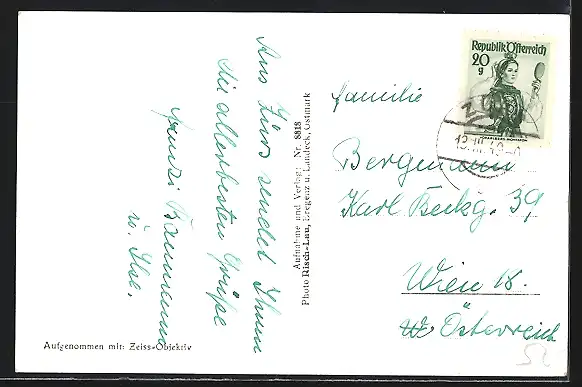 Aus Zürs sendet Ihnen
die allerbesten Grüße
Baumann
u. Ilse.
Aufgenommen mit: Zeiss-Objektiv
Aufnahme und Verlag: Nr. 8818
Photo Risch-Lau, Bregenz u. Landeck, Ostmark
Republik Österreich
20
g
Familie
Bergmann
Karl Beckg. 39
Wien 18.
Österreich
52